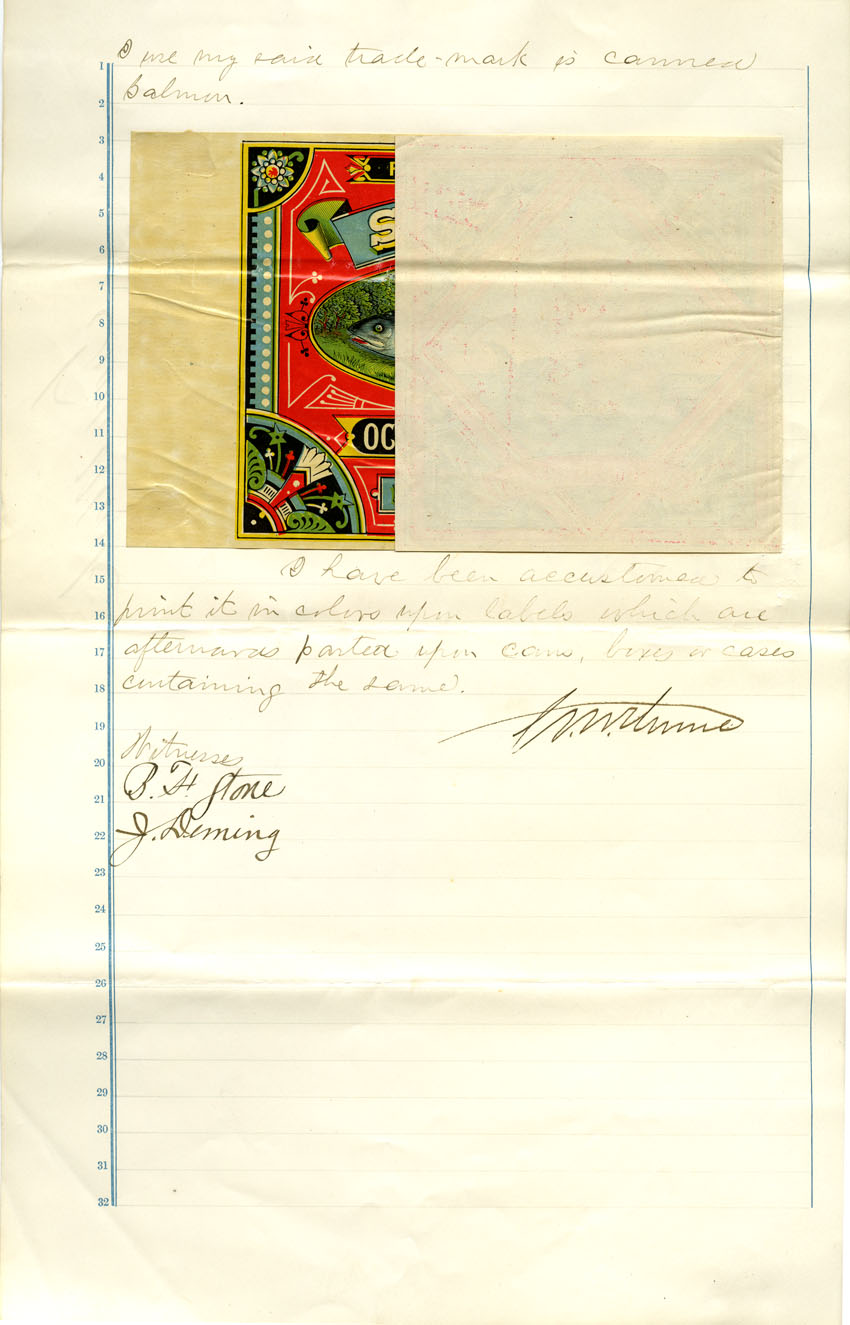 I use my said trade-mark is canned
Salmon.
S
OC
I have been accustomed to
print it in colors upon labels which are
afterwards pasted upon cans, boxes or cases
containing the same.
Witnesses
B. F. Stone
J. Deming
1
2
3
4
5
6
7
8
9
10
11
12
13
14
15
16
17
18
19
20
21
22
23
24
25
26
27
28
29
30
31
32